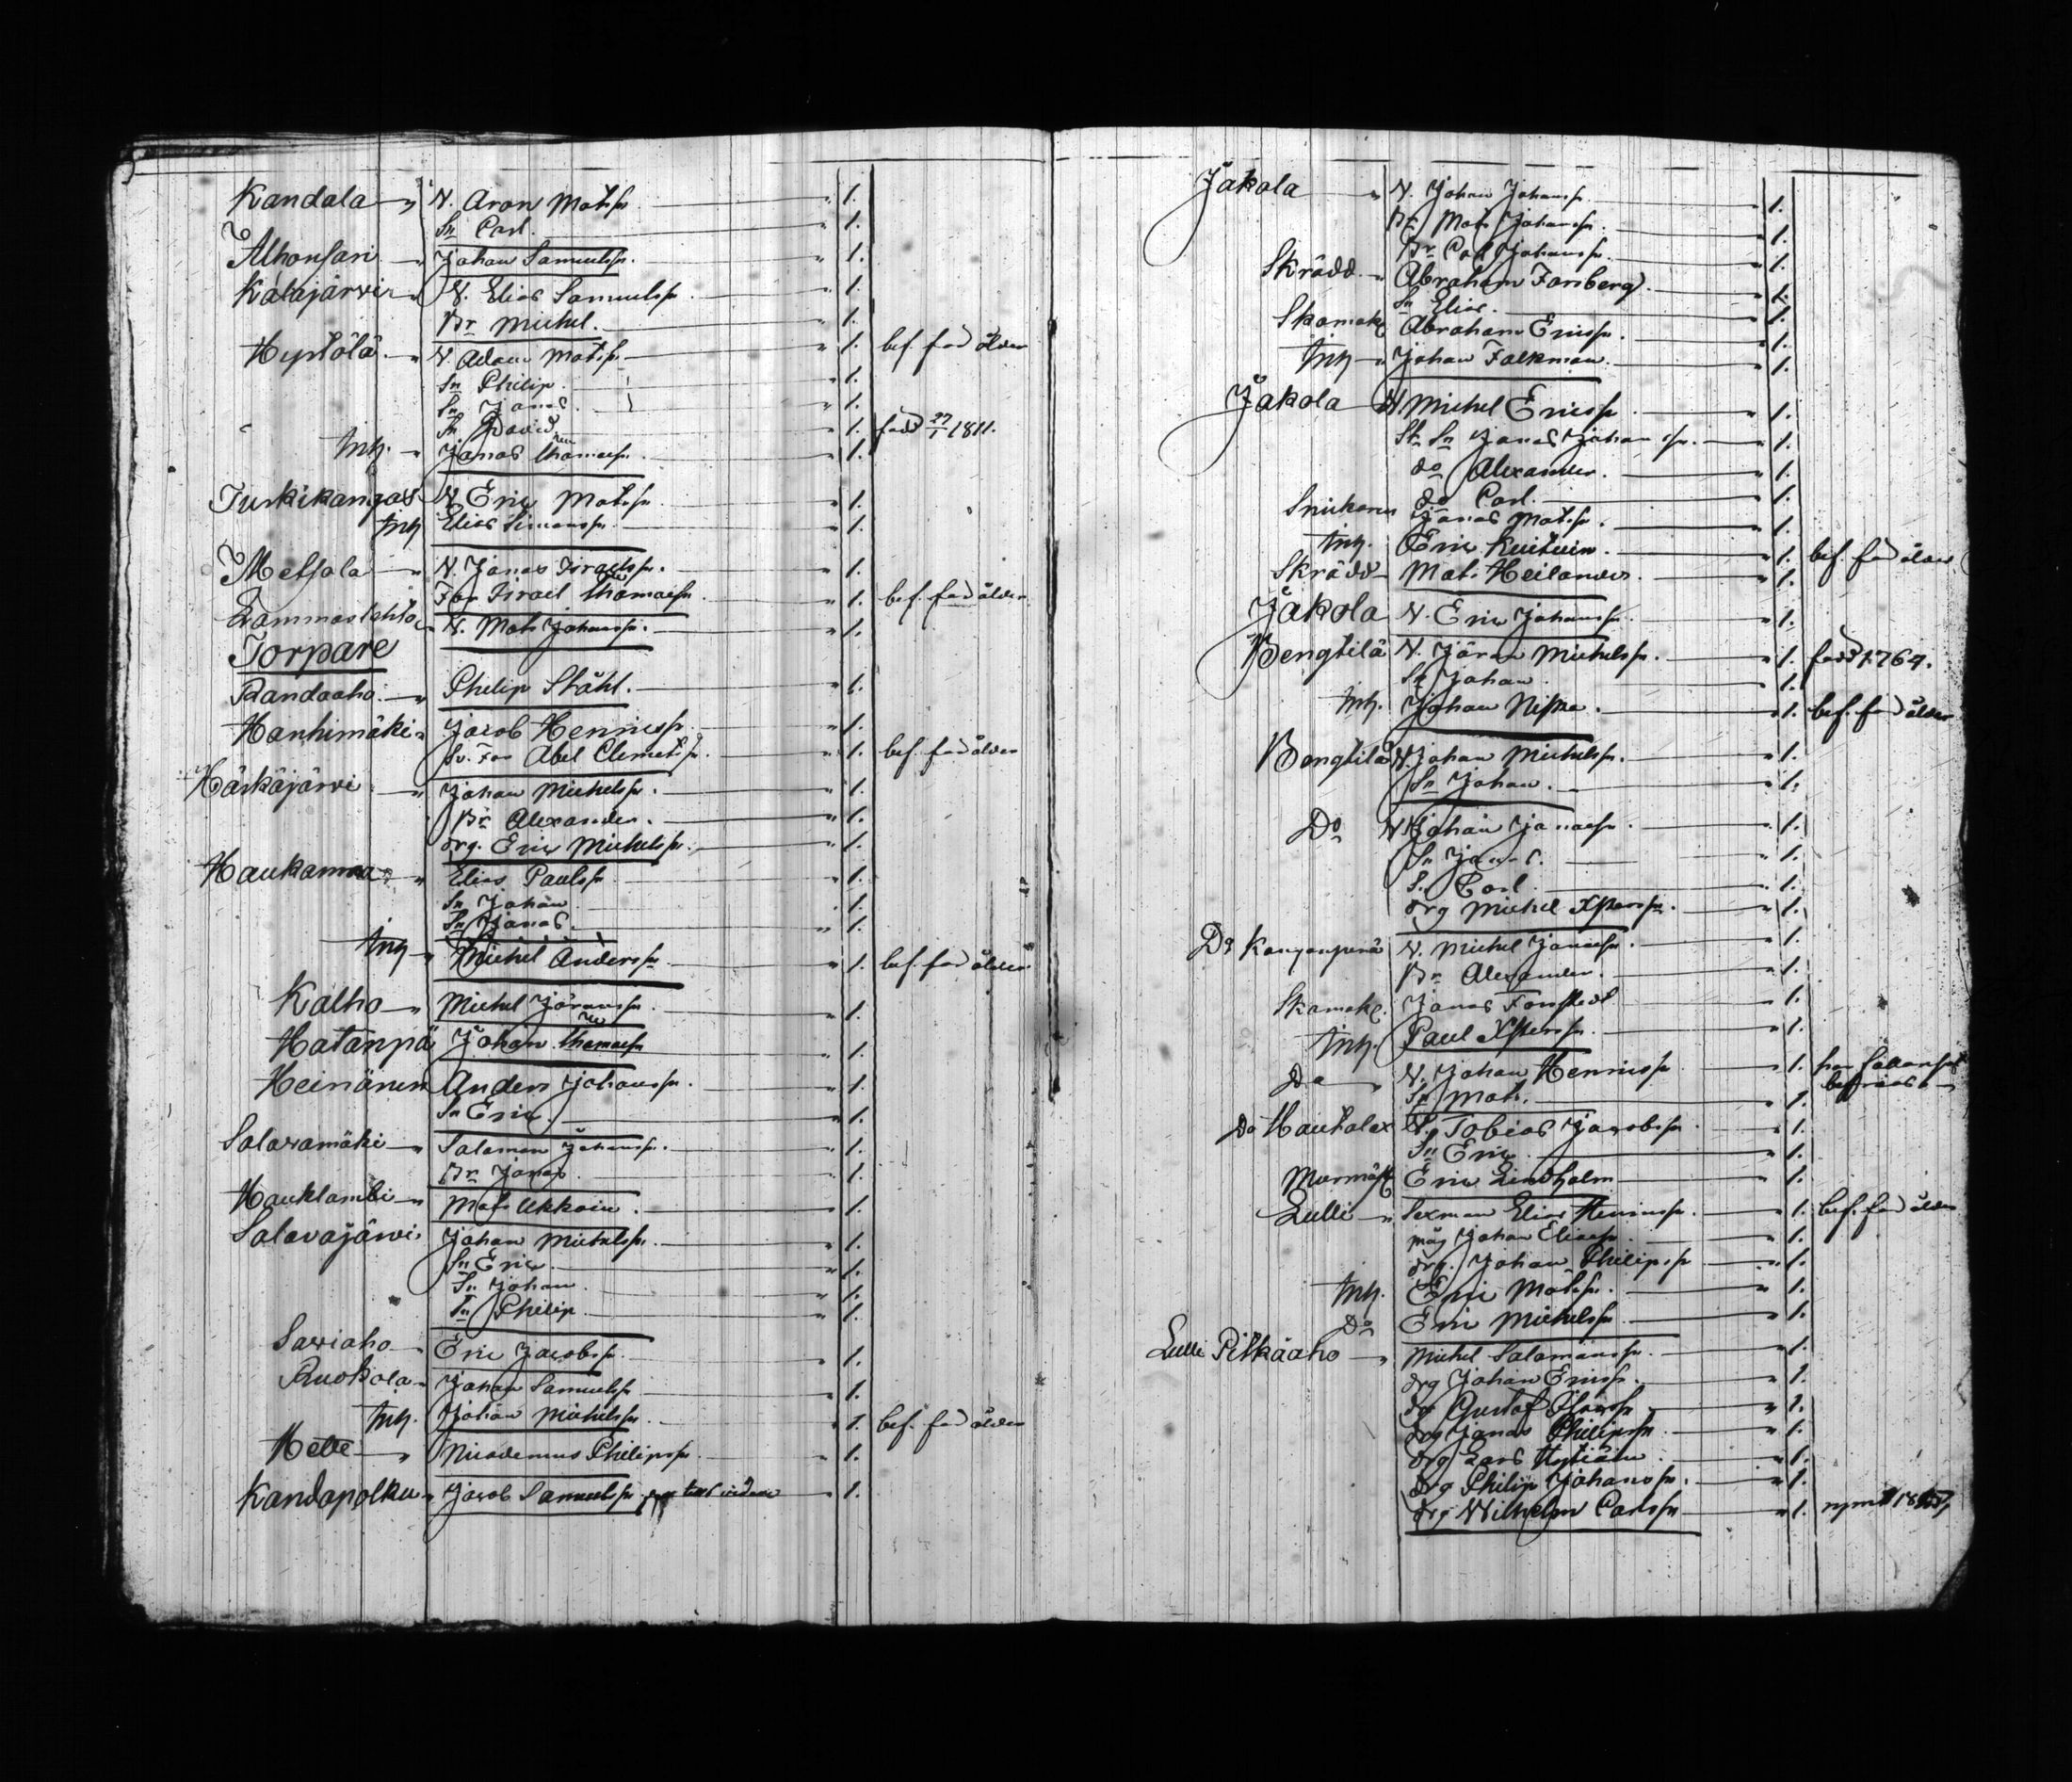 Kandala " N. Aron Matsn " 1.
Sn Carl. " 1.
Alhonsari " Johan Samuelsn. " 1.
Katajarwi " N. Elias Samuelsn " 1.
Br Michel. " 1.
Hyttölä " N. Adam Matsn " 1. bef. för ålder
Sn Philip " 1.
Sn Jonas " 1.
Sn David " 1. född 27/1 1811.
Inh. " Jonas Thomaesn " 1.
Turkikangas N Eric Matssn " 1.
Inh Elias Simonsn " 1.
Metsola " N. Jonas Israelsn. " 1.
Far Israel Thomaesn " 1. bef. för ålder
Lammaslehto N. Mats Johansn. " 1.
Torpare
Randaaho " Philip Ståhl. " 1.
Hanhimäki " Jacob Henricsn " 1.
Sv. Far Abel Clemetsn. " 1. bef. för ålder
Härkäjärwi " Johan Michelsn. " 1.
Br Alexander. " 1.
drg. Eric Michelsn. " 1.
Haukanmaa " Elias Paulsn " 1.
Sn Johan " 1.
Sn Jonas. " 1.
Inh " Michel Andersn " 1. bef. för ålder
Kalho " Michel Göransn. " 1.
Hatanpä Johan Thomaesn " 1.
Heinänen Anders Johansn. " 1.
Sn Eric. " 1.
Salawamäki " Salamon Johansn. " 1.
Br Jonas. " 1.
Hauklambi " Mats Ukkoin. " 1.
Salavajärwi. Johan Michelsn. " 1.
Sn Eric. " 1.
Sn Johan " 1.
Sn Philip " 1.
Sawiaho Eric Jacobsn. " 1.
Ruokola " Johan Samuelsn " 1.
Inh. Johan Michelsn. " 1. bef. för ålder
Hette " Nicodemus Philipsn. " 1.
Kandapolku " Jacob Samuelsn " 1.
Jakola " N. Johan Johansn. " 1.
Br Mats Johansn. " 1.
Br Carl Johansn. " 1.
Skrädd. " Abraham Forsberg. " 1.
Sn Elias. " 1.
Skomak Abraham Ericsn. " 1.
Inh " Johan Falkman. " 1.
Jakola N Michel Ericsn " 1.
St. Sn Jonas Johansn. " 1.
do Alexander. " 1.
do Carl. " 1.
Snickaren Jonas Matsn. " 1.
Inh. Eric Kuituin. " 1. bef. för ålder
Skrädd Mats Heilander. " 1.
Jakola N. Eric Johansn. " 1.
Bengtilä N. Göran Michelsn. " 1. född 1764.
Sn Johan. " 1.
Inh. Johan Niska. " 1. bef. för ålder
Bengtilä N. Johan Michelsn. " 1.
Sn Johan. " 1.
Do N Johan Jonaesn. " 1.
Sn Jonas. " 1.
S. Carl. " 1.
drg Michel Xstersn. " 1.
Do Kanganperä N. Michel Jonaesn. " 1.
Br Alexander. " 1.
Skomak. Jonas Forstedt " 1.
Inh. Paul Xstersn. " 1.
Do " N. Johan Henricsn " 1.
Sn Mats. " 1.
Do Hautala N. Tobias Jacobsn. " 1.
Sn Eric. " 1.
Murmäst Eric Lindholm " 1.
Lulli " Sexman Elias Henricsn. " 1. bef. för ålder
måg Johan Eliaesn. " 1.
drg. Johan Philipsn " 1.
Inh. Eric Matsn. " 1.
Do Eric Michelsn. " 1.
Lulli Pitkäaho " Michel Salamonsn. " 1.
drg Johan Ericsn. " 1.
drg Gustaf Olofsn " 1.
drg Jonas Philipsn " 1.
drg Lars " 1.
drg Philip Johansn. " 1.
drg Wilhelm Carlsn " 1.